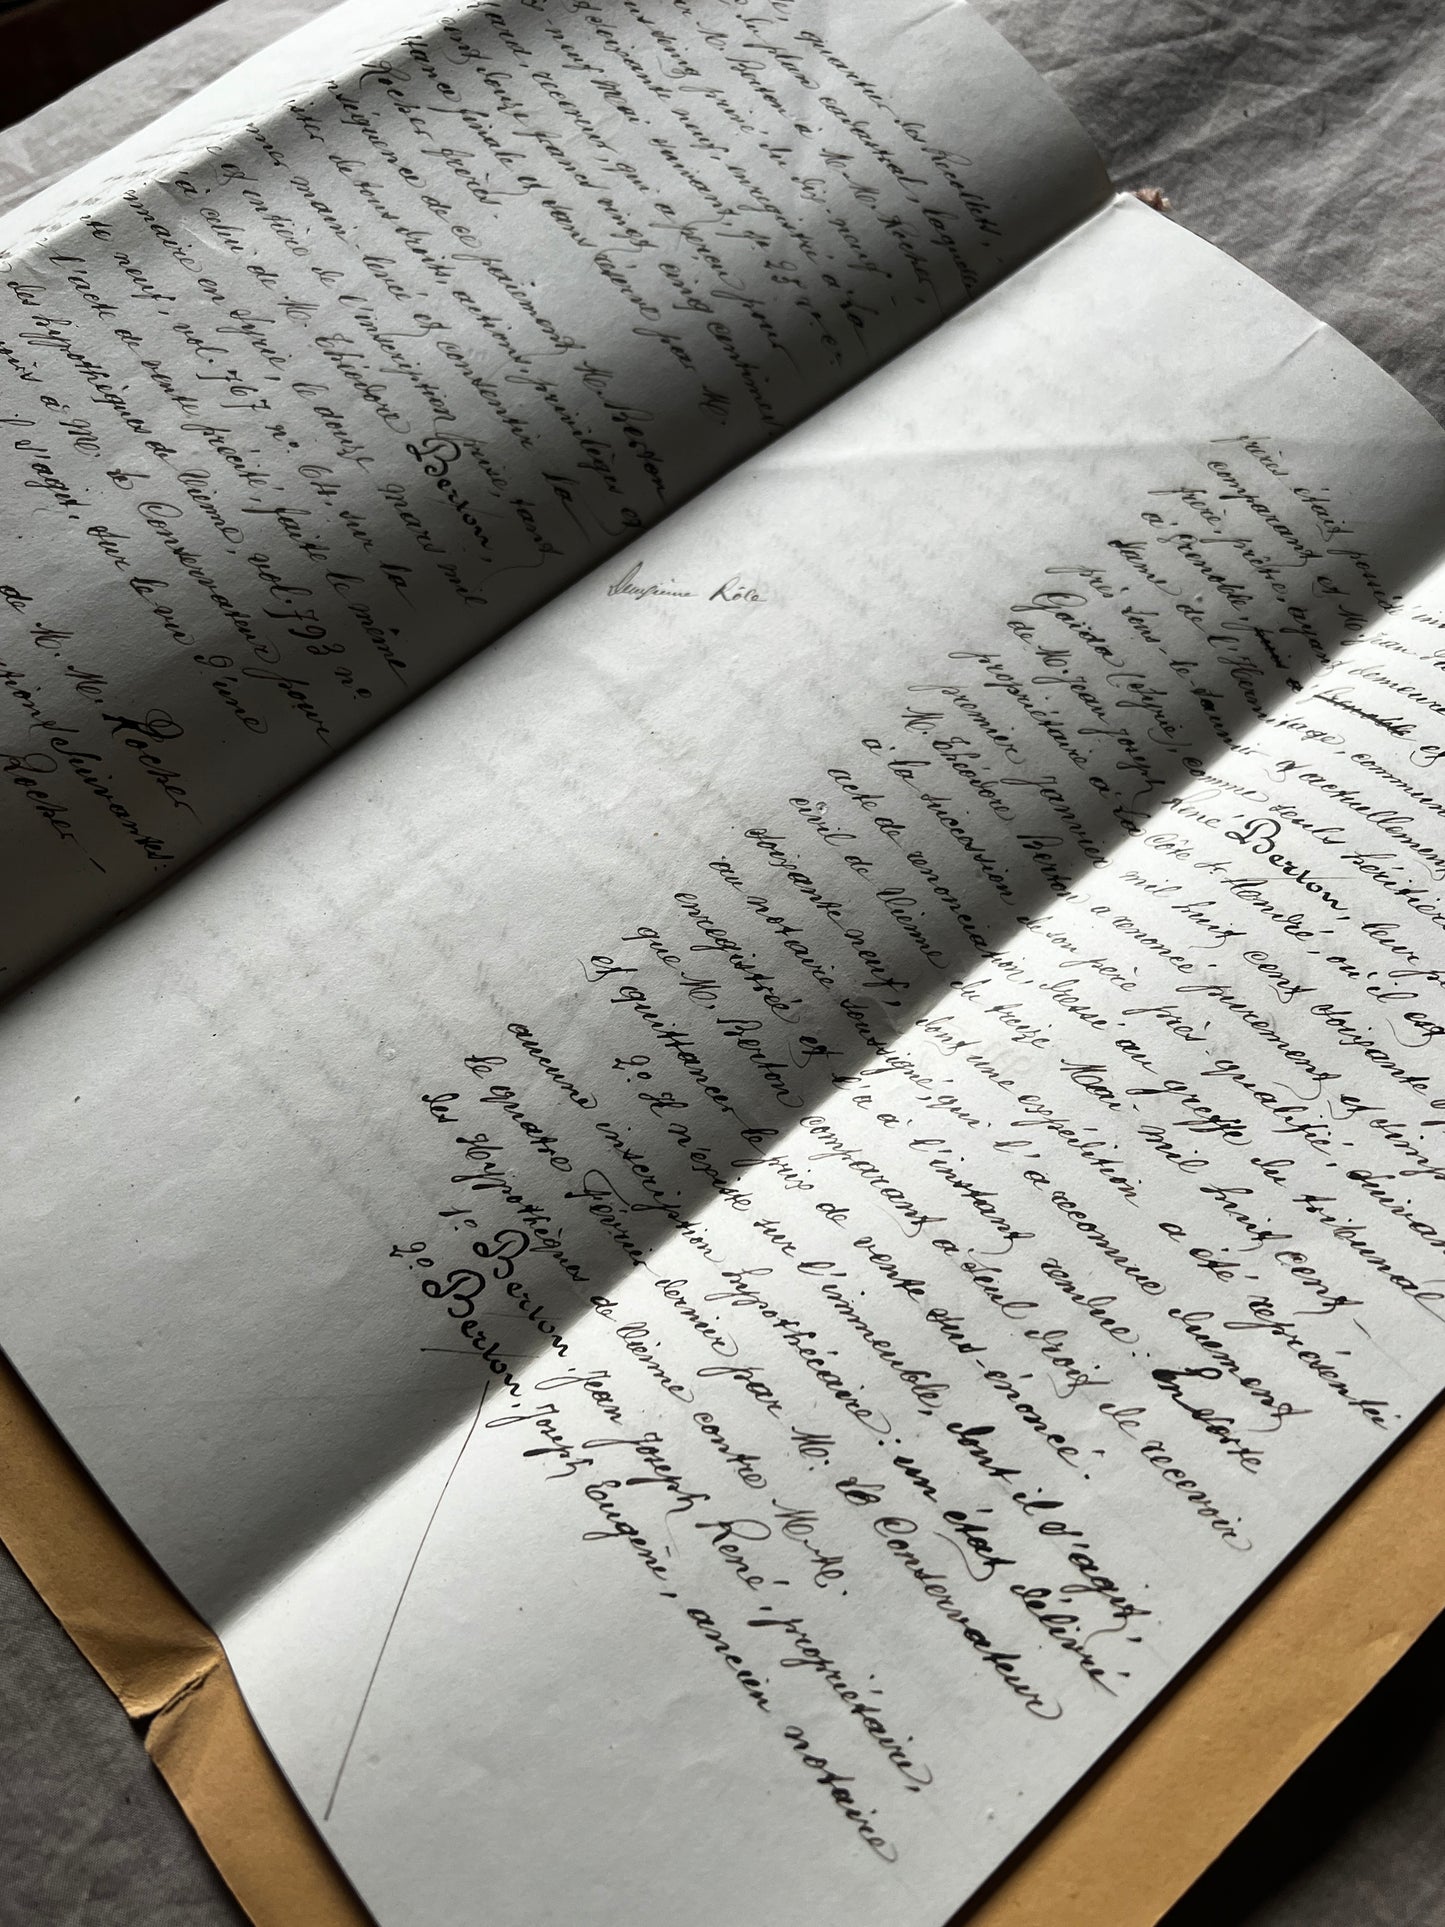 quartier les Recollets,
du plan cadastral, laquelle
M. Berton à M. M. Rocher,
seing privé du dix-neuf
soixante neuf, enregistré à La
neuf Mai suivant, fo 25 vo cr
receveur, qui a perçu pour
douze francs vingt cinq centimes
finale et sans réserve par M.
Rocher frères.
de ce paiement M. Berton
de tous droits, actions, privilèges et
main-levée et consentir la
et entière de l'inscription prise, tant
à celui de M. Théodore Berton,
en Syrie, le douze Mars mil
neuf, vol. 767 no 64, sur la
l'acte de vente précité, faite le même
des hypothèques de Vienne, vol. 793 no
à M. le Conservateur pour
il s'agit, sur le vu d'une
de M. M. Rocher
suivantes:
Rocher
Deuxième Rôle
frères était possédé
comparant et M. Jean
père, prêtre, ayant demeuré
à Grenoble, à Grenoble et
dame de l'Hermitage, commune
près Lons-le-Saunier et actuellement
(Syrie), comme seuls héritiers
de M. Jean Joseph René Berton, leur
propriétaire à La Côte St André, où il est
premier Janvier mil huit cent soixante
M. Théodore Berton a renoncé purement et
à la succession de son père près-qualifié, suivant
acte de renonciation, dressé au greffe du tribunal
civil de Vienne du treize Mai mil huit cent
soixante neuf, dont une expédition a été représentée
au notaire soussigné, qui l'a reconnue dument
enregistrée et l'a à l'instant rendue: En sorte
que M. Berton comparant a seul droit de recevoir
et quittancer le prix de vente sus-énoncé.
2o Il n'existe sur l'immeuble, dont il s'agit,
aucune inscription hypothécaire: un état délivré
le quatre Février dernier par M. le Conservateur
des Hypothèques de Vienne contre M. M.
1o Berton, Jean Joseph René, propriétaire,
2o Berton, Joseph Eugène, ancien notaire